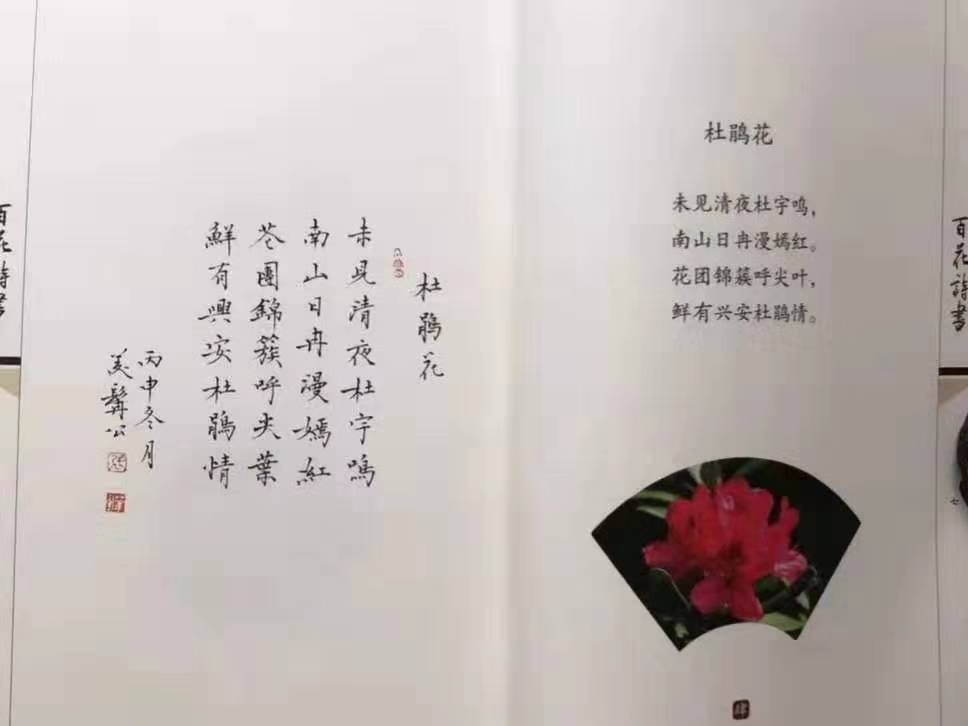 杜鹃花
未见清夜杜宇鸣，
南山日冉漫嫣红。
花团锦簇呼尖叶，
鲜有兴安杜鹃情。
杜鵑花
未見清夜杜宇鳴
南山日冉漫嫣紅
花團錦簇呼尖葉
鮮有興安杜鵑情
丙申冬月
美髯公
百花詩書
百花詩書
肆
七